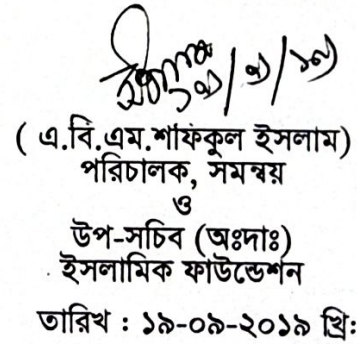 ( এ.বি.এম.শফিকুল ইসলাম)
পরিচালক, সমন্বয়
ও
উপ-সচিব (অঃদাঃ)
ইসলামিক ফাউন্ডেশন
তারিখ : ১৯-০৯-২০১৯ খ্রি: